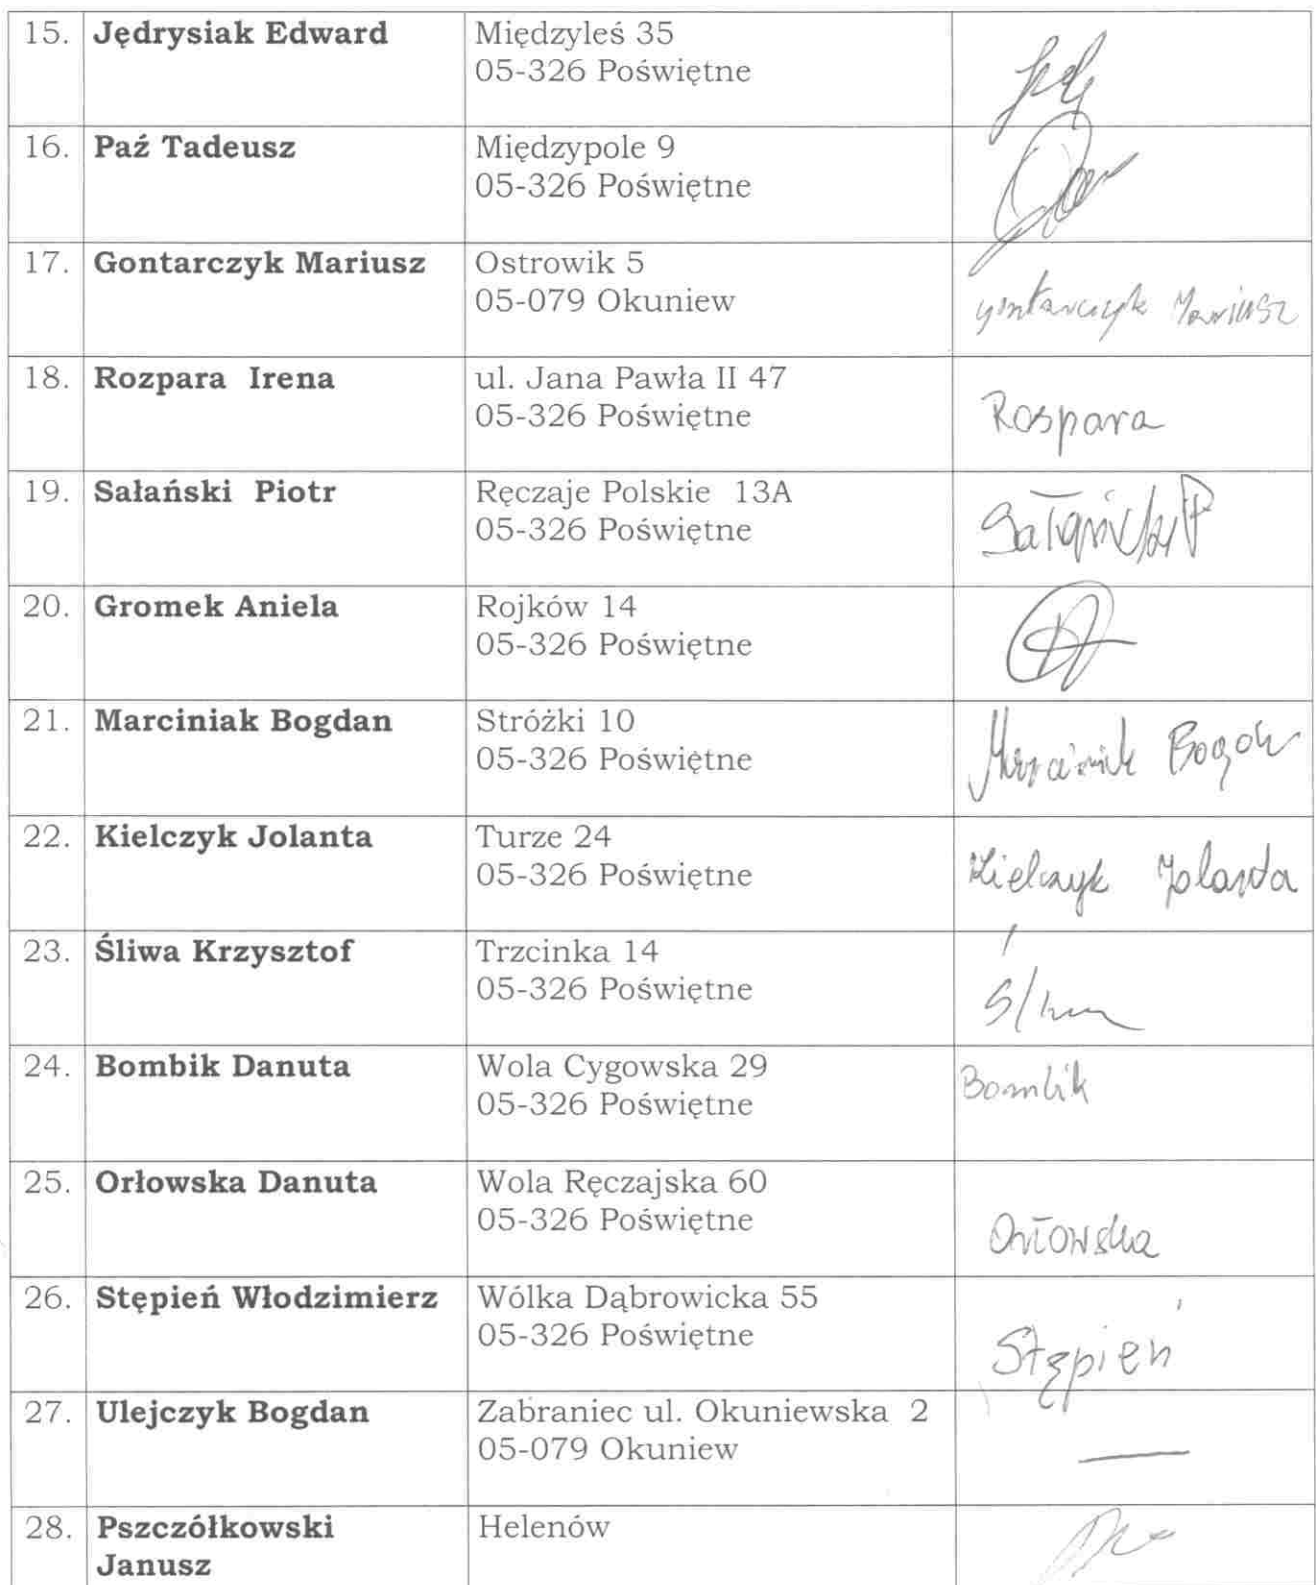 15. Jędrysiak Edward Międzyleś 35
05-326 Poświętne
16. Paź Tadeusz Międzypole 9
05-326 Poświętne
17. Gontarczyk Mariusz Ostrowik 5
05-079 Okuniew
Gontarczyk Mariusz
18. Rozpara Irena ul. Jana Pawła II 47
05-326 Poświętne
Rospara
19. Sałański Piotr Ręczaje Polskie 13A
05-326 Poświętne
Sałański P
20. Gromek Aniela Rojków 14
05-326 Poświętne
21. Marciniak Bogdan Stróżki 10
05-326 Poświętne
Marciniak Bogdan
22. Kielczyk Jolanta Turze 24
05-326 Poświętne
Kielczyk Jolanta
23. Śliwa Krzysztof Trzcinka 14
05-326 Poświętne
24. Bombik Danuta Wola Cygowska 29
05-326 Poświętne
Bombik
25. Orłowska Danuta Wola Ręczajska 60
05-326 Poświętne
Orłowska
26. Stępień Włodzimierz Wólka Dąbrowicka 55
05-326 Poświętne
Stępień
27. Ulejczyk Bogdan Zabraniec ul. Okuniewska 2
05-079 Okuniew
28. Pszczółkowski Helenów
Janusz